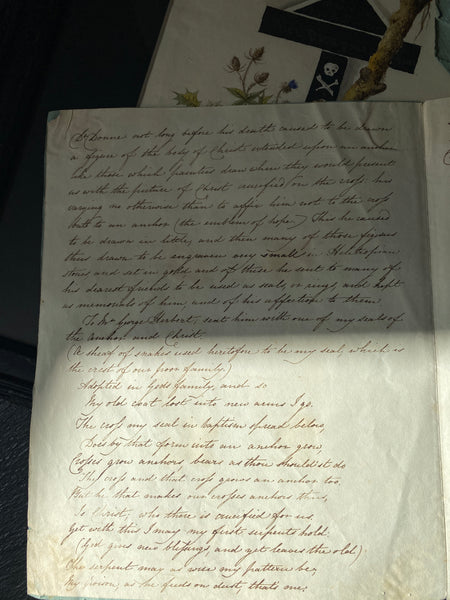 Dr Donne not long before his death caused to be drawn
a figure of the body of Christ extended upon an anchor
like those which painters draw when they would present
us with the picture of Christ crucified on the cross: his
varying no otherwise than to affix him not to the cross
but to an anchor (the emblem of hope.) This he caused
to be drawn in little, and then many of those figures
thus drawn to be engraven very small in Helitropian
stones and set in gold and of these he sent to many of
his dearest friends to be used as seals, or rings, and kept
as memorials of him, and of his affection to them.
To Mr George Herbert, sent him with one of my seals of
the anchor and Christ.
(A sheaf of snakes used heretofore to be my seal, which is
the crest of our poor family.)
Adopted in Gods family, and so
My old coat lost into new arms I go.
The cross my seal in baptism spread below,
Does by that form into an anchor grow.
Crosses grow anchors, bear as thou shouldst do
Thy cross and that cross grows an anchor too.
But he that makes our crosses anchors thus,
Is Christ, who there is crucified for us.
Yet with this I may my first serpents hold
(God gives new blessings, and yet leaves the old)
The serpent may as wise my pattern be;
My poison, as he feeds on dust, that's me;